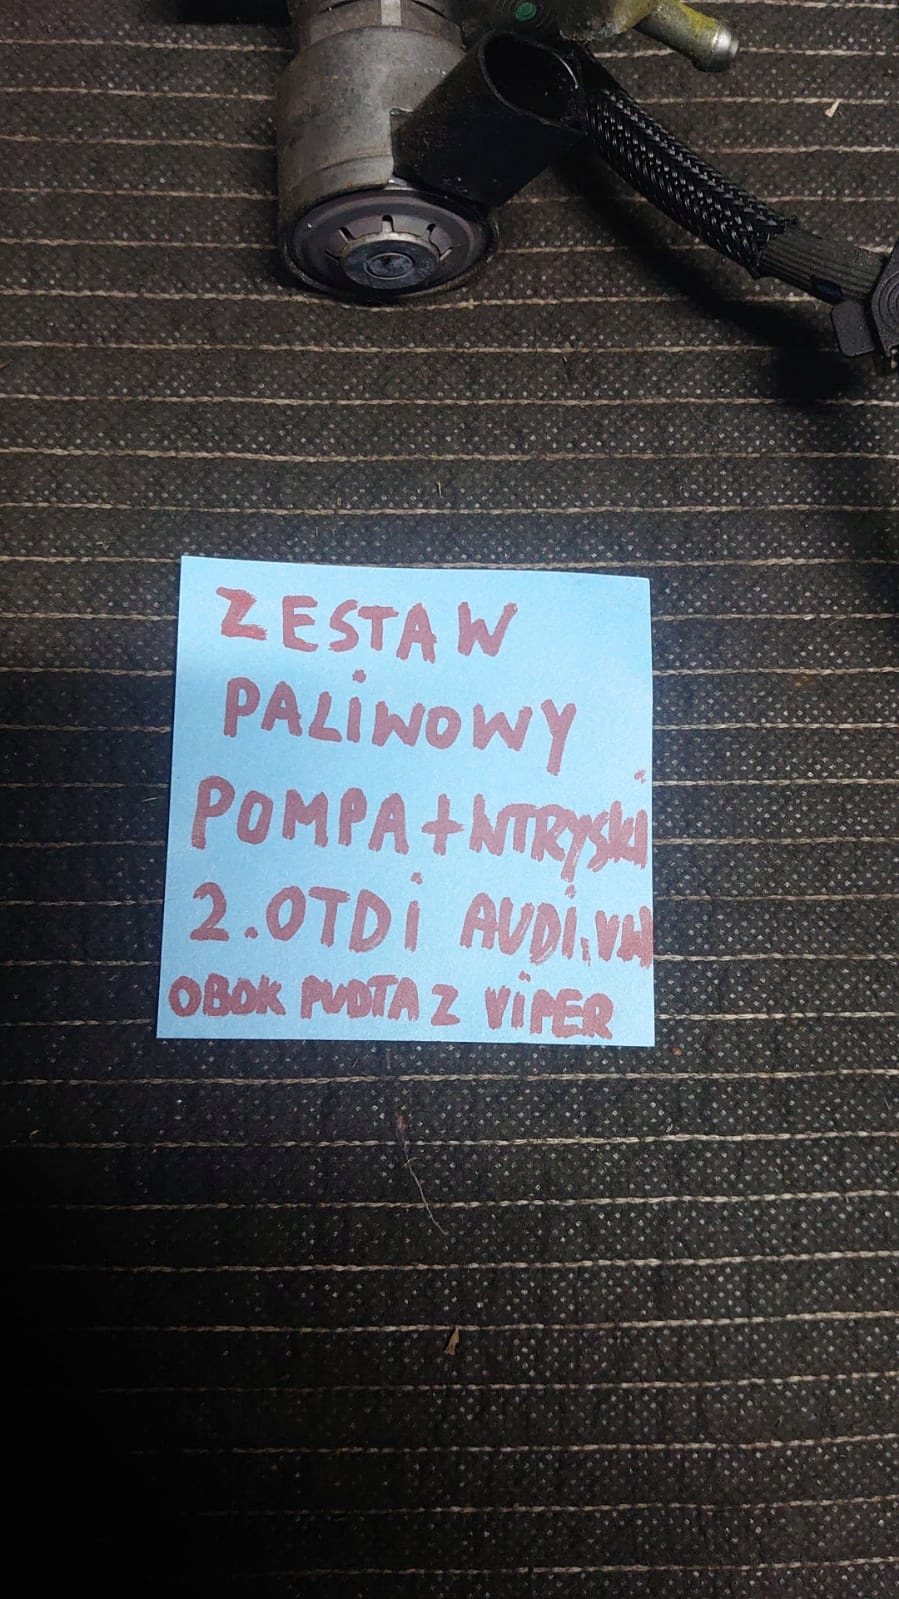 ZESTAW
PALiWOWY
POMPA+WTRYSKi
2.0TDi AUDi.VW
OBOK PUDTA Z ViPER